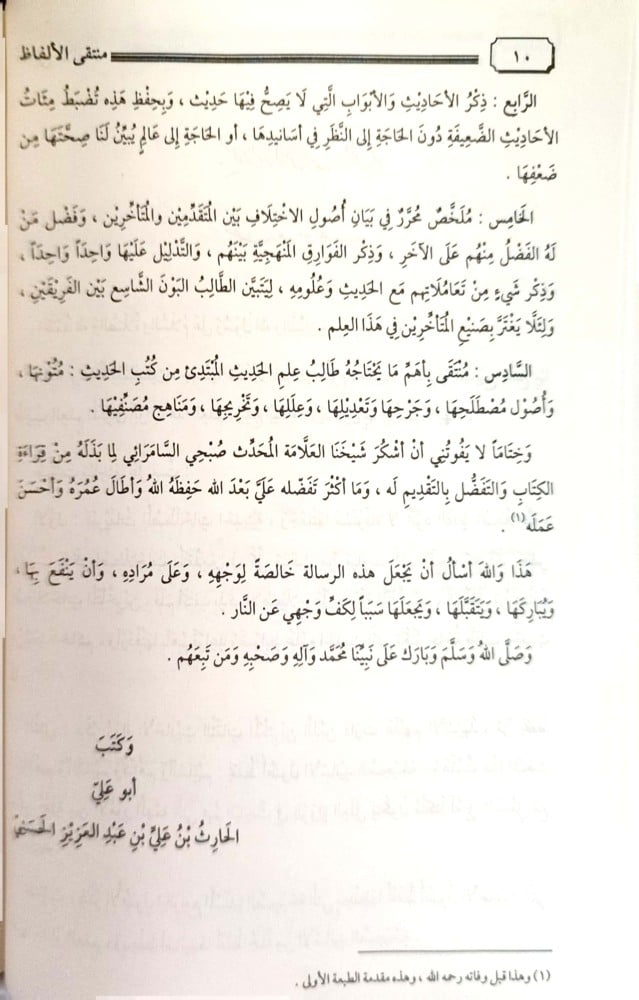 ١٠
منتقى الألفاظ
الرَّابِع : ذِكْرُ الأحَادِيْثِ وَالأبْوَابِ الَّتِي لَا يَصِحُّ فِيْهَا حَدِيْث ، وَبِحِفْظِ هَذِه تُضْبَطُ مِئَاتُ
الأحَادِيْثِ الضَّعِيفَةِ دُونَ الحَاجَةِ إلى النَّظَرِ فِي أسَانِيدِهَا ، أو الحَاجَةِ إلى عَالِمٍ يُبيِّنُ لَنَا صِحَّتَهَا مِن
ضَعْفِهَا .
الخَامِس : مُلَخَّصٌ مُحَرَّرٌ فِي بَيَانِ أُصُولِ الاخْتِلَافِ بَيْن المُتَقَدِّمِين وَالمتَأخِّرِين ، وَفَضْل مَنْ
لَهُ الفَضْلُ مِنْهُم عَلَى الآخَرِ ، وَذِكْر الفَوَارِق المَنْهَجِيَّةِ بَيْنَهُم ، وَالتَّدْلِيْل عَلَيْهَا وَاحِدَاً وَاحِدَاً ،
وَذِكْر شَيءٍ مِنْ تَعَامُلَاتِهِم مَع الحَدِيثِ وَعُلُومِهِ ، لِيَتَبَيَّن الطَّالِبُ البَوْنَ الشَّاسِع بَيْن الفَرِيْقَيْنِ ،
وَلِئَلَّا يَغْتَرَّ بِصَنِيْعِ المُتَأخِّرِين فِي هَذَا العِلم .
السَّادِس : مُنْتَقًى بِأهَمِّ مَا يَحْتَاجُهُ طَالِبُ عِلمِ الحَدِيْثِ المُبْتَدِئ مِن كُتُبِ الحَدِيثِ : مُتُونِهَا ،
وَأُصُوْل مُصْطَلَحِهَا ، وَجَرْحِهَا وَتَعْدِيْلِهَا ، وَعِلَلِهَا ، وَتَخْرِيجِهَا ، وَمَنَاهِجِ مُصَنِّفِيْهَا .
وَخِتَامَاً لا يَفُوتُني أنْ أشْكُرَ شَيْخَنَا العَلَّامَة المُحَدِّث صُبْحِي السَّامَرائِي لِمَا بَذَلَهُ مِنْ قِرَاءَةِ
الكِتَابِ وَالتَفَضُّل بِالتَقْدِيمِ لَه ، وَمَا أكْثَرَ تَفَضّله عَلَيَّ بَعْدَ الله حَفِظَهُ اللهُ وَأطَالَ عُمُرَهُ وَأحْسَنَ
عَمَلَه (١) .
هَذَا وَاللهَ أسْألُ أنْ يَجْعَلَ هذه الرسالة خَالِصَةً لِوَجْهِهِ ، وَعَلَى مُرَادِهِ ، وَأنْ يَنْفَعَ بِهَا ،
وَيُبَارِكَهَا ، وَيَتَقَبَّلَهَا ، وَيَجْعَلَهَا سَبَبَاً لِكَفِّ وَجْهِي عَن النَّار .
وَصَلَّى اللهُ وَسَلَّمَ وَبَارَك عَلَى نَبِيِّنَا مُحَمَّد وَآلِهِ وَصَحْبِهِ وَمَن تَبِعَهُم .
وَكَتَبَ
أبو عَلِيّ
الحَارِثُ بْنُ عَلِيِّ بْنِ عَبْدِ العَزِيْزِ الحَسَنِيُّ
(١) وهذا قبل وفاته رحمه الله ، وهذه مقدمة الطبعة الأولى .